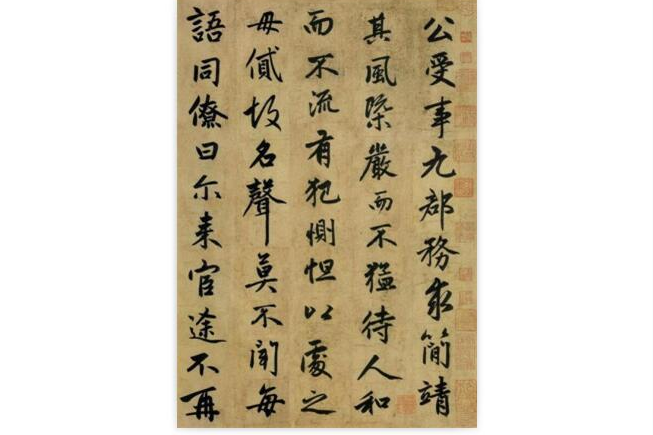 公受事九郡務求簡靖
其風槩嚴而不猛待人和
而不流有犯惻怛以處之
毋故名聲莫不聞每
語同僚曰尔来官途不再